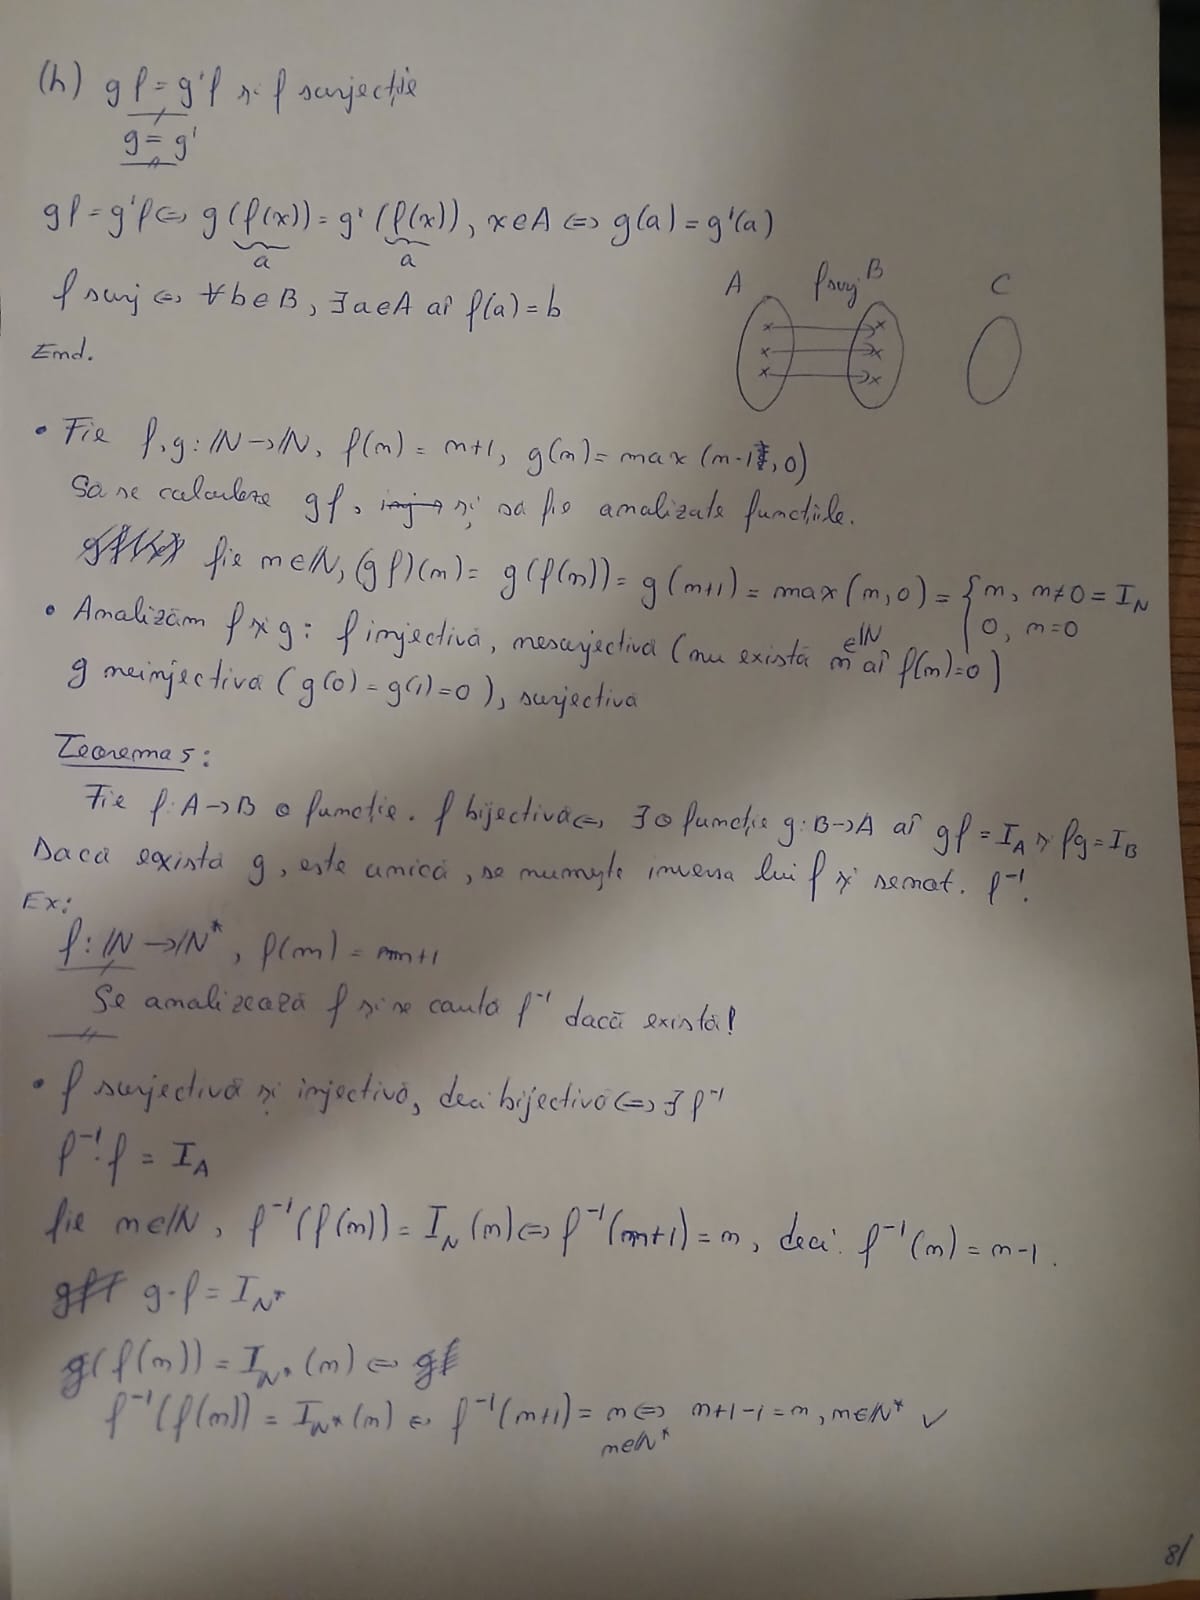 (h) gf = g'f și f surjecție
g = g'
gf = g'f ⇔ g(f(x)) = g'(f(x)), x∈A ⇔ g(a) = g'(a)
a a
f surj ⇔ ∀b∈B, ∃a∈A aî f(a) = b
A f surj B C
End.
• Fie f,g: ℕ→ℕ, f(n) = n+1, g(n) = max(n-1, 0)
Să se calculeze gf, și să fie analizate funcțiile.
fie n∈ℕ, (gf)(n) = g(f(n)) = g(n+1) = max(n,0) = { n, n≠0 = I_N
0, n=0
• Analizăm f și g: f injectivă, nesurjectivă (nu există n ∈ℕ aî f(n)=0)
g neinjectivă (g(0) = g(1) = 0), surjectivă
Teorema 5:
Fie f: A→B o funcție. f bijectivă ⇔ ∃ o funcție g: B→A aî gf = I_A și fg = I_B
Dacă există g, este unică, se numește inversa lui f și se not. f⁻¹.
Ex:
f: ℕ→ℕ*, f(n) = n+1
Se analizează f și se caută f⁻¹ dacă există!
• f surjectivă și injectivă, deci bijectivă ⇔ ∃ f⁻¹
f⁻¹·f = I_A
fie n∈ℕ, f⁻¹(f(n)) = I_N(n) ⇔ f⁻¹(n+1) = n, deci f⁻¹(n) = n-1.
g·f = I_N*
g(f(n)) = I_N*(n) ⇔
f⁻¹(f(n)) = I_N*(n) ⇔ f⁻¹(n+1) = n ⇔ n+1-1 = n, n∈ℕ* ✓
n∈ℕ*
8/